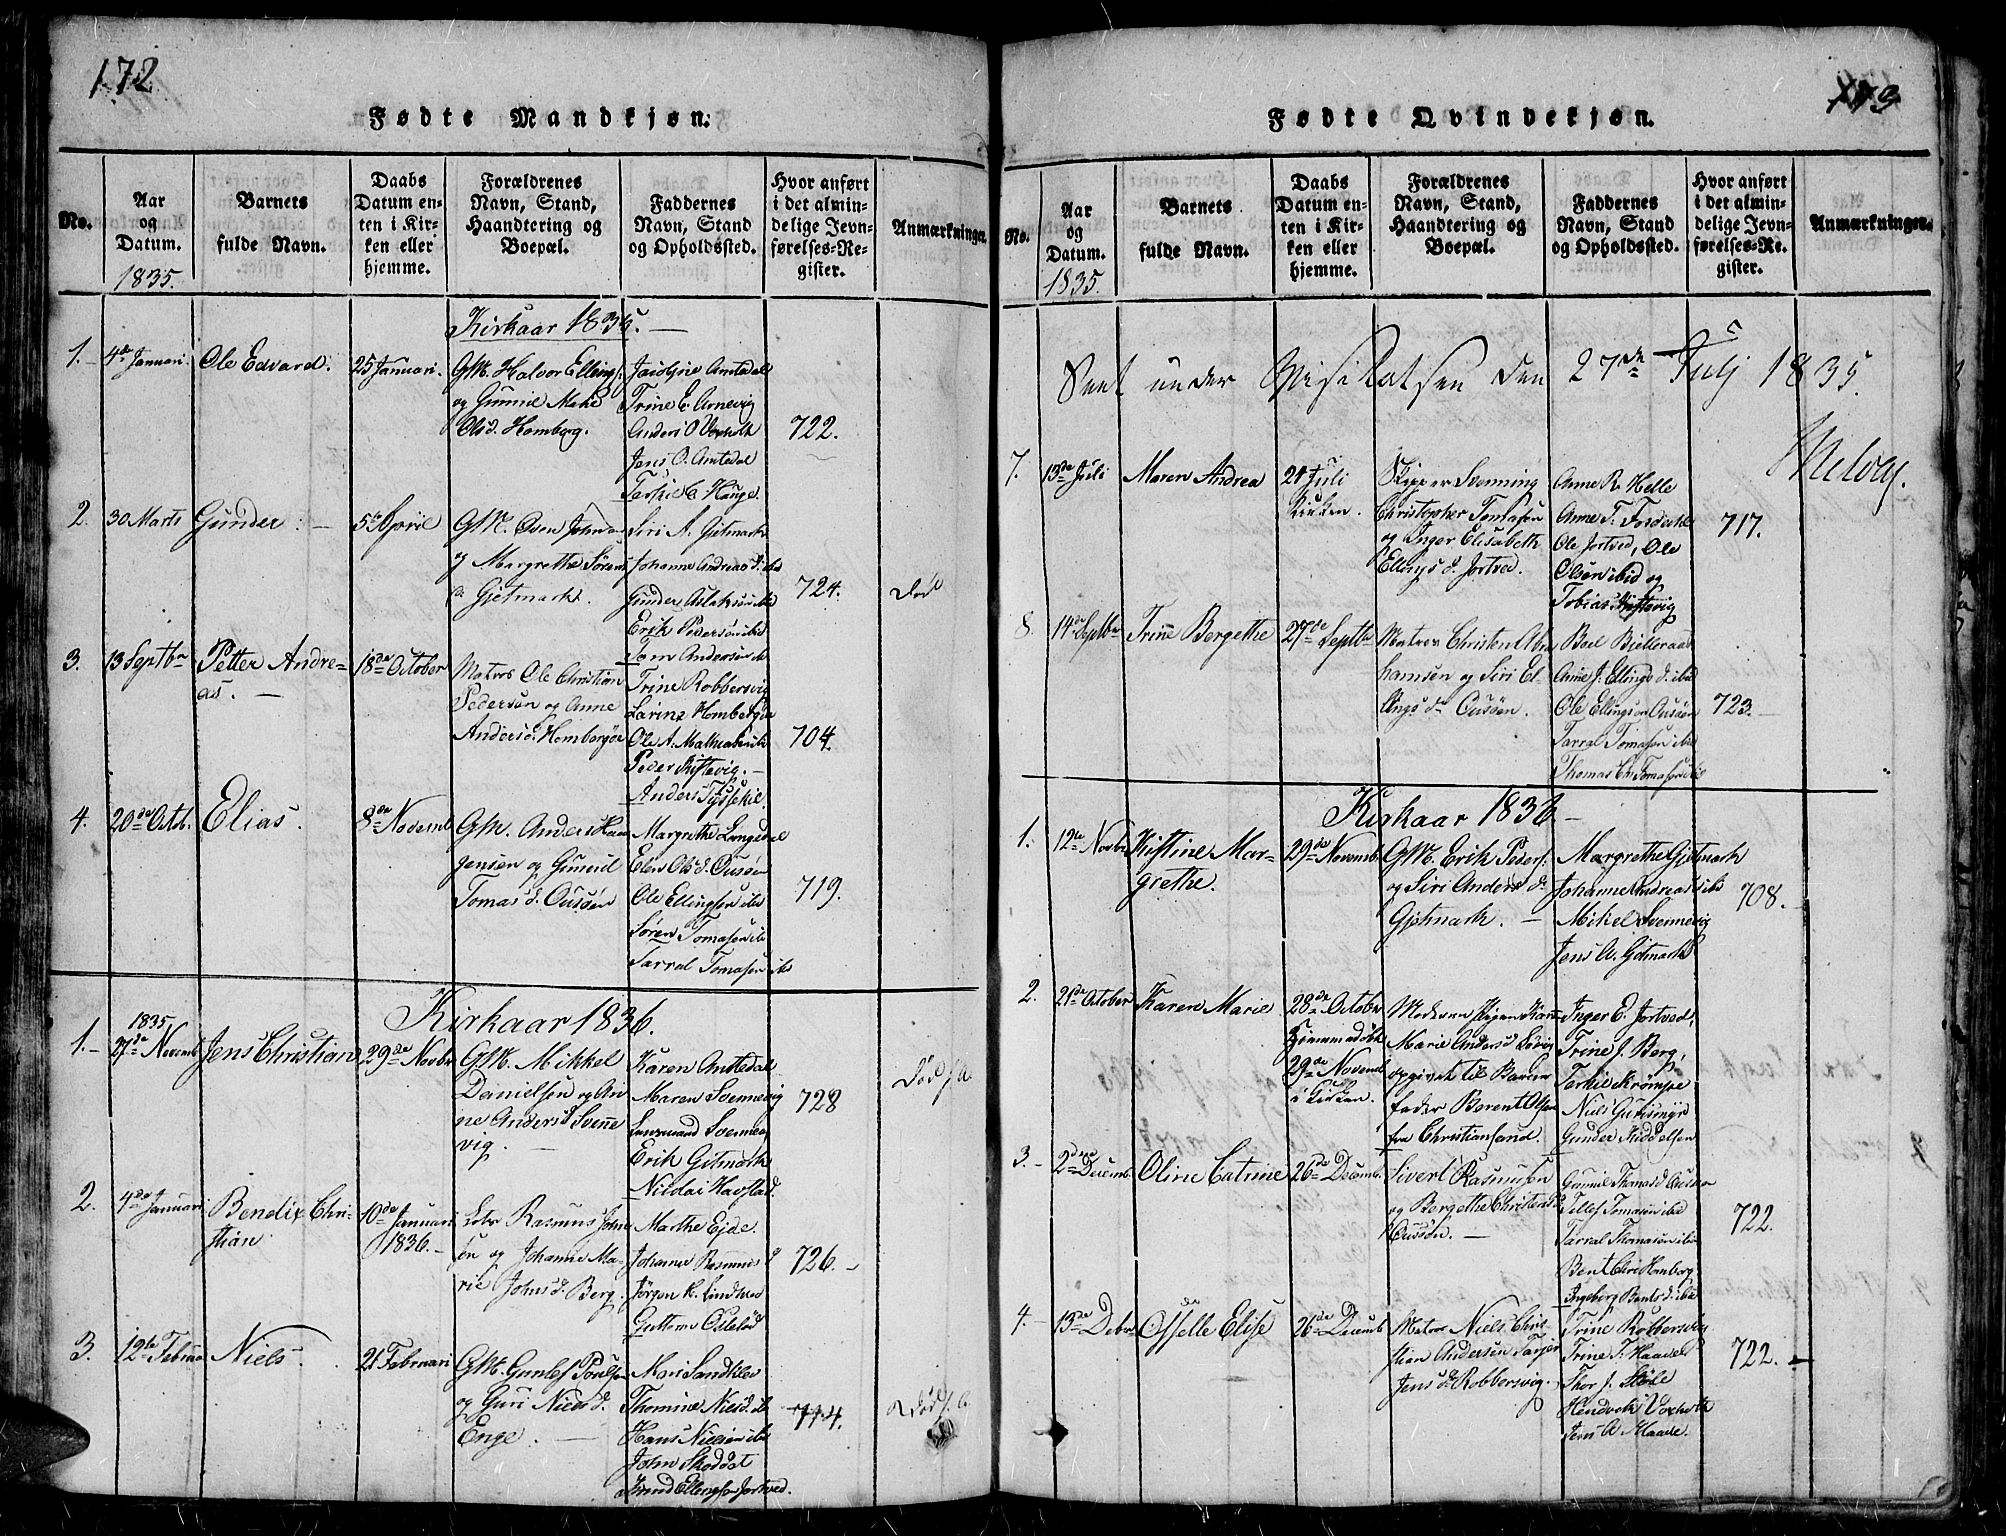 172
Fødte Mandkjøn.
No.
Aar
og
Datum.
1835.
Barnets
fulde Navn.
Daabs
Datum en-
ten i Kir-
ken eller
hjemme.
Forældrenes
Navn, Stand,
Haandtering og
Boepæl.
Faddernes
Navn, Stand
og Opholdssted.
Hvor anført
i det almin-
delige Jevn-
førelses-Re-
gister.
Anmærkninger.
Kirkaar 1835.
1.
4de Januari.
Ole Edvard.
25 Januari.
GM. Halvor Ellings:
og Gunnil Marie
Olsd. Homborg.
Amtedal
Trine E. Arnevig
Anders O
Jens O. Amtedal
Terkil C. Hauge.
722.
2.
30 Marts
Gunder.
5te April
GM. Oven
og Margrethe Sørens
d. Gjetmark.
Siri A. Gjetmark
Johanne Andreas d. ibid
Gunder Aslaksön ibid
Erik Pedersön ibid
Andersön ib
724.
Død
3.
13 Septbr
Petter Andre-
as.
18de October
Matros Ole Christian
Pedersön og Anne
Andersd. Homborgön
Trine Robbersvig
Homborgön
Ole A.
Peder Kiftevig.
Anders
704.
4.
20de Octb.
Elias.
8de Novemb
GM. Anders
Jensen og Gunnild
Tomas d. Ousöen
Margrethe Langedal
Elen Ols d. Ousöen
Ole Ellingsen ibid
Sören Tomasen ib
Tarral Tomasen ibid
719.
Kirkaar 1836.
1.
1835
27de Novemb
Jens Christian
29de Novbr
GM. Mikkel
Danielsen og An-
ne Andersd Svenne
vig.
Karen Amtedal
Maren Svennevig
Svennevig
Erik Gitmark
Nicolai Havstad.
728
Död
2.
4de Januari
Bendix Chri-
stian.
10de Januari
1836.
Rasmus John
sen og Johanne Ma-
rie Johnsd. Berg.
Marthe Ejde.
Johanne Rasmus d
Jörgen K.
Guttorm
726.
3.
12te Februa
Niels.
21 Februari
GM. Gunlef
og Guri Niels d.
Enge.
Mari Sandklev
Thomine Nielsd. ib
Hans Nielsen ibid
John Skoddet
Ellingsen Jortved.
714.
Död
173
Fødte Qvindekjøn.
No.
Aar
og
Datum.
1835.
Barnets
fulde Navn.
Daabs
Datum en-
ten i Kir-
ken eller
hjemme.
Forældrenes
Navn, Stand,
Haandtering og
Boepæl.
Faddernes
Navn, Stand
og Opholdssted.
Hvor anført
i det almin-
delige Jevn-
førelses-Re-
gister.
Anmærkninger.
Seet under Visitatsen den 27de Julj 1835
7.
13de Juli
Maren Andrea
Juli
Kirken.
Skipper Svenning
Christopher Tomasen
og Inger Elisabeth
Ellings d. Jortved.
Anne R. Helle
Anne T.
Ole Jortved, Ole
Olsen ibid og
Tobias Kiftevig
717.
8.
14de Septbr
Trine Bergethe
27de Septbr
Matros Christen Abra
hamsen og Siri El-
lings d. Ousöen.
Boel
Anne J. Ellings d. ibid
Ole Ellingsen Ousöen
Tarral Tomasen ibid
Thomas Chr Tomasen ibid
723.
Kirkaar 1836
1.
12te Novbr
Kistine Mar-
grethe.
29de Novemb.
GM. Erik Peders:
og Siri Anders d.
Gjetmark.
Margrethe Gjetmark
Johanne Andreas d ibid
Mikel Svennevig
Jens A. Gitmark
708.
2.
21de October
Karen Marie
28de October
29de Novemb
i Kirken.
Moderen Pigen Karen
Marie Andersd
opgivet til Barne
fader Berent Olsen
fra Christiansand.
Inger E. Jortved,
Trine J. Berg,
Terkil Krömpe
Niels
Gunder
3.
2den Decemb
Oline Catrine
26de Decemb.
Sivert Rasmusen
og Bergethe Christens d
Ousöen.
Gunnil Thomas d Ousöen
Tellef Tomasen ibid
Tarral Thomasön ibid
Bent Chri Homborg
Ingeborg Bents d. ibid
722.
4.
13de Debr
Osselle Elise
26de Decemb
Matros Niels Chris-
tian Andersen
Jens d. Robbersvig.
Trine Robbersvig
Trine T. Haave
Thor J.
Hendrik
Jens A Haave.
722.